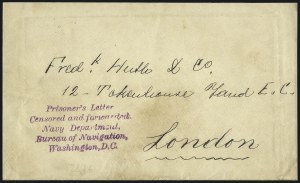 Fredk Huth & Co.
12 - Tokenhouse Yard E.C.
London
Prisoner's Letter
Censored and forwarded.
Navy Department,
Bureau of Navigation,
Washington, D.C.